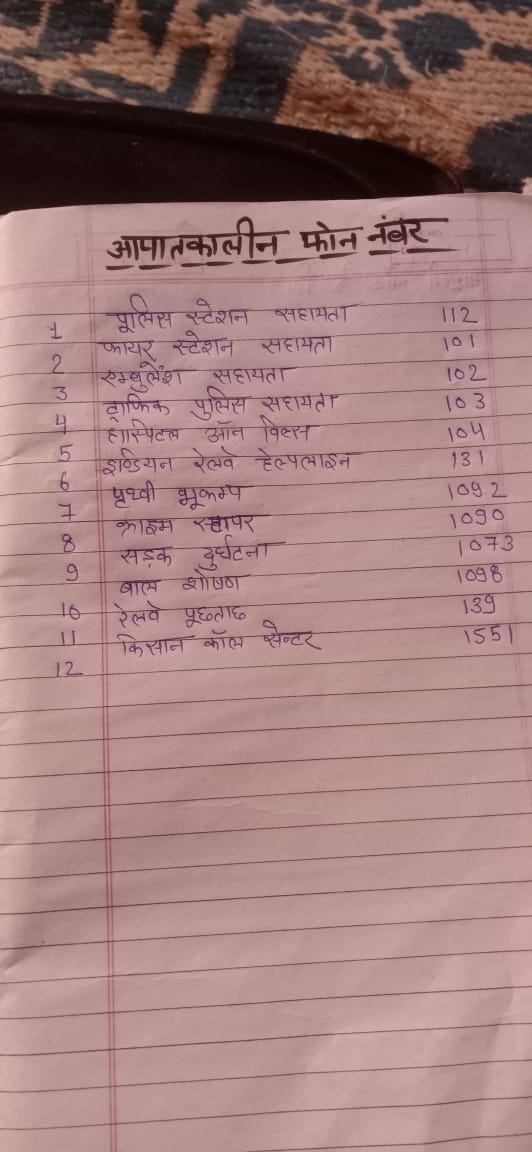 आपातकालीन फोन नंबर
1 पूलिस स्टेशन सहायता 112
2 फायर स्टेशन सहायता 101
3 एम्बुलेंश सहायता 102
4 ट्राफिक पुलिस सहायता 103
5 हास्पिटल ऑन विल्स 104
6 इण्डियन रेलवे हेल्पलाइन 131
7 पृथ्वी भूकम्प 1092
8 क्राइम स्टापर 1090
9 सड़क दुर्घटना 1073
10 बाल शोषण 1098
11 रेलवे पूछताछ 139
12 किसान कॉल सेन्टर 1551